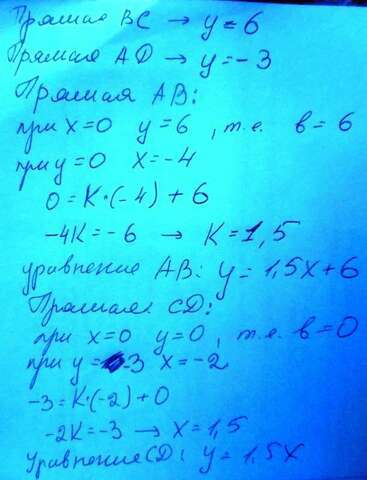 Прямая BC → y = 6
Прямая AD → y = -3
Прямая AB:
при x=0 y=6, т.е. b=6
при y=0 x=-4
0=K·(-4)+6
-4K=-6 → K=1,5
уравнение AB: y=1,5x+6
Прямая CD:
при x=0 y=0, т.е. b=0
при y=-3 x=-2
-3=K·(-2)+0
-2K=-3 → x=1,5
Уравнение CD: y=1,5x